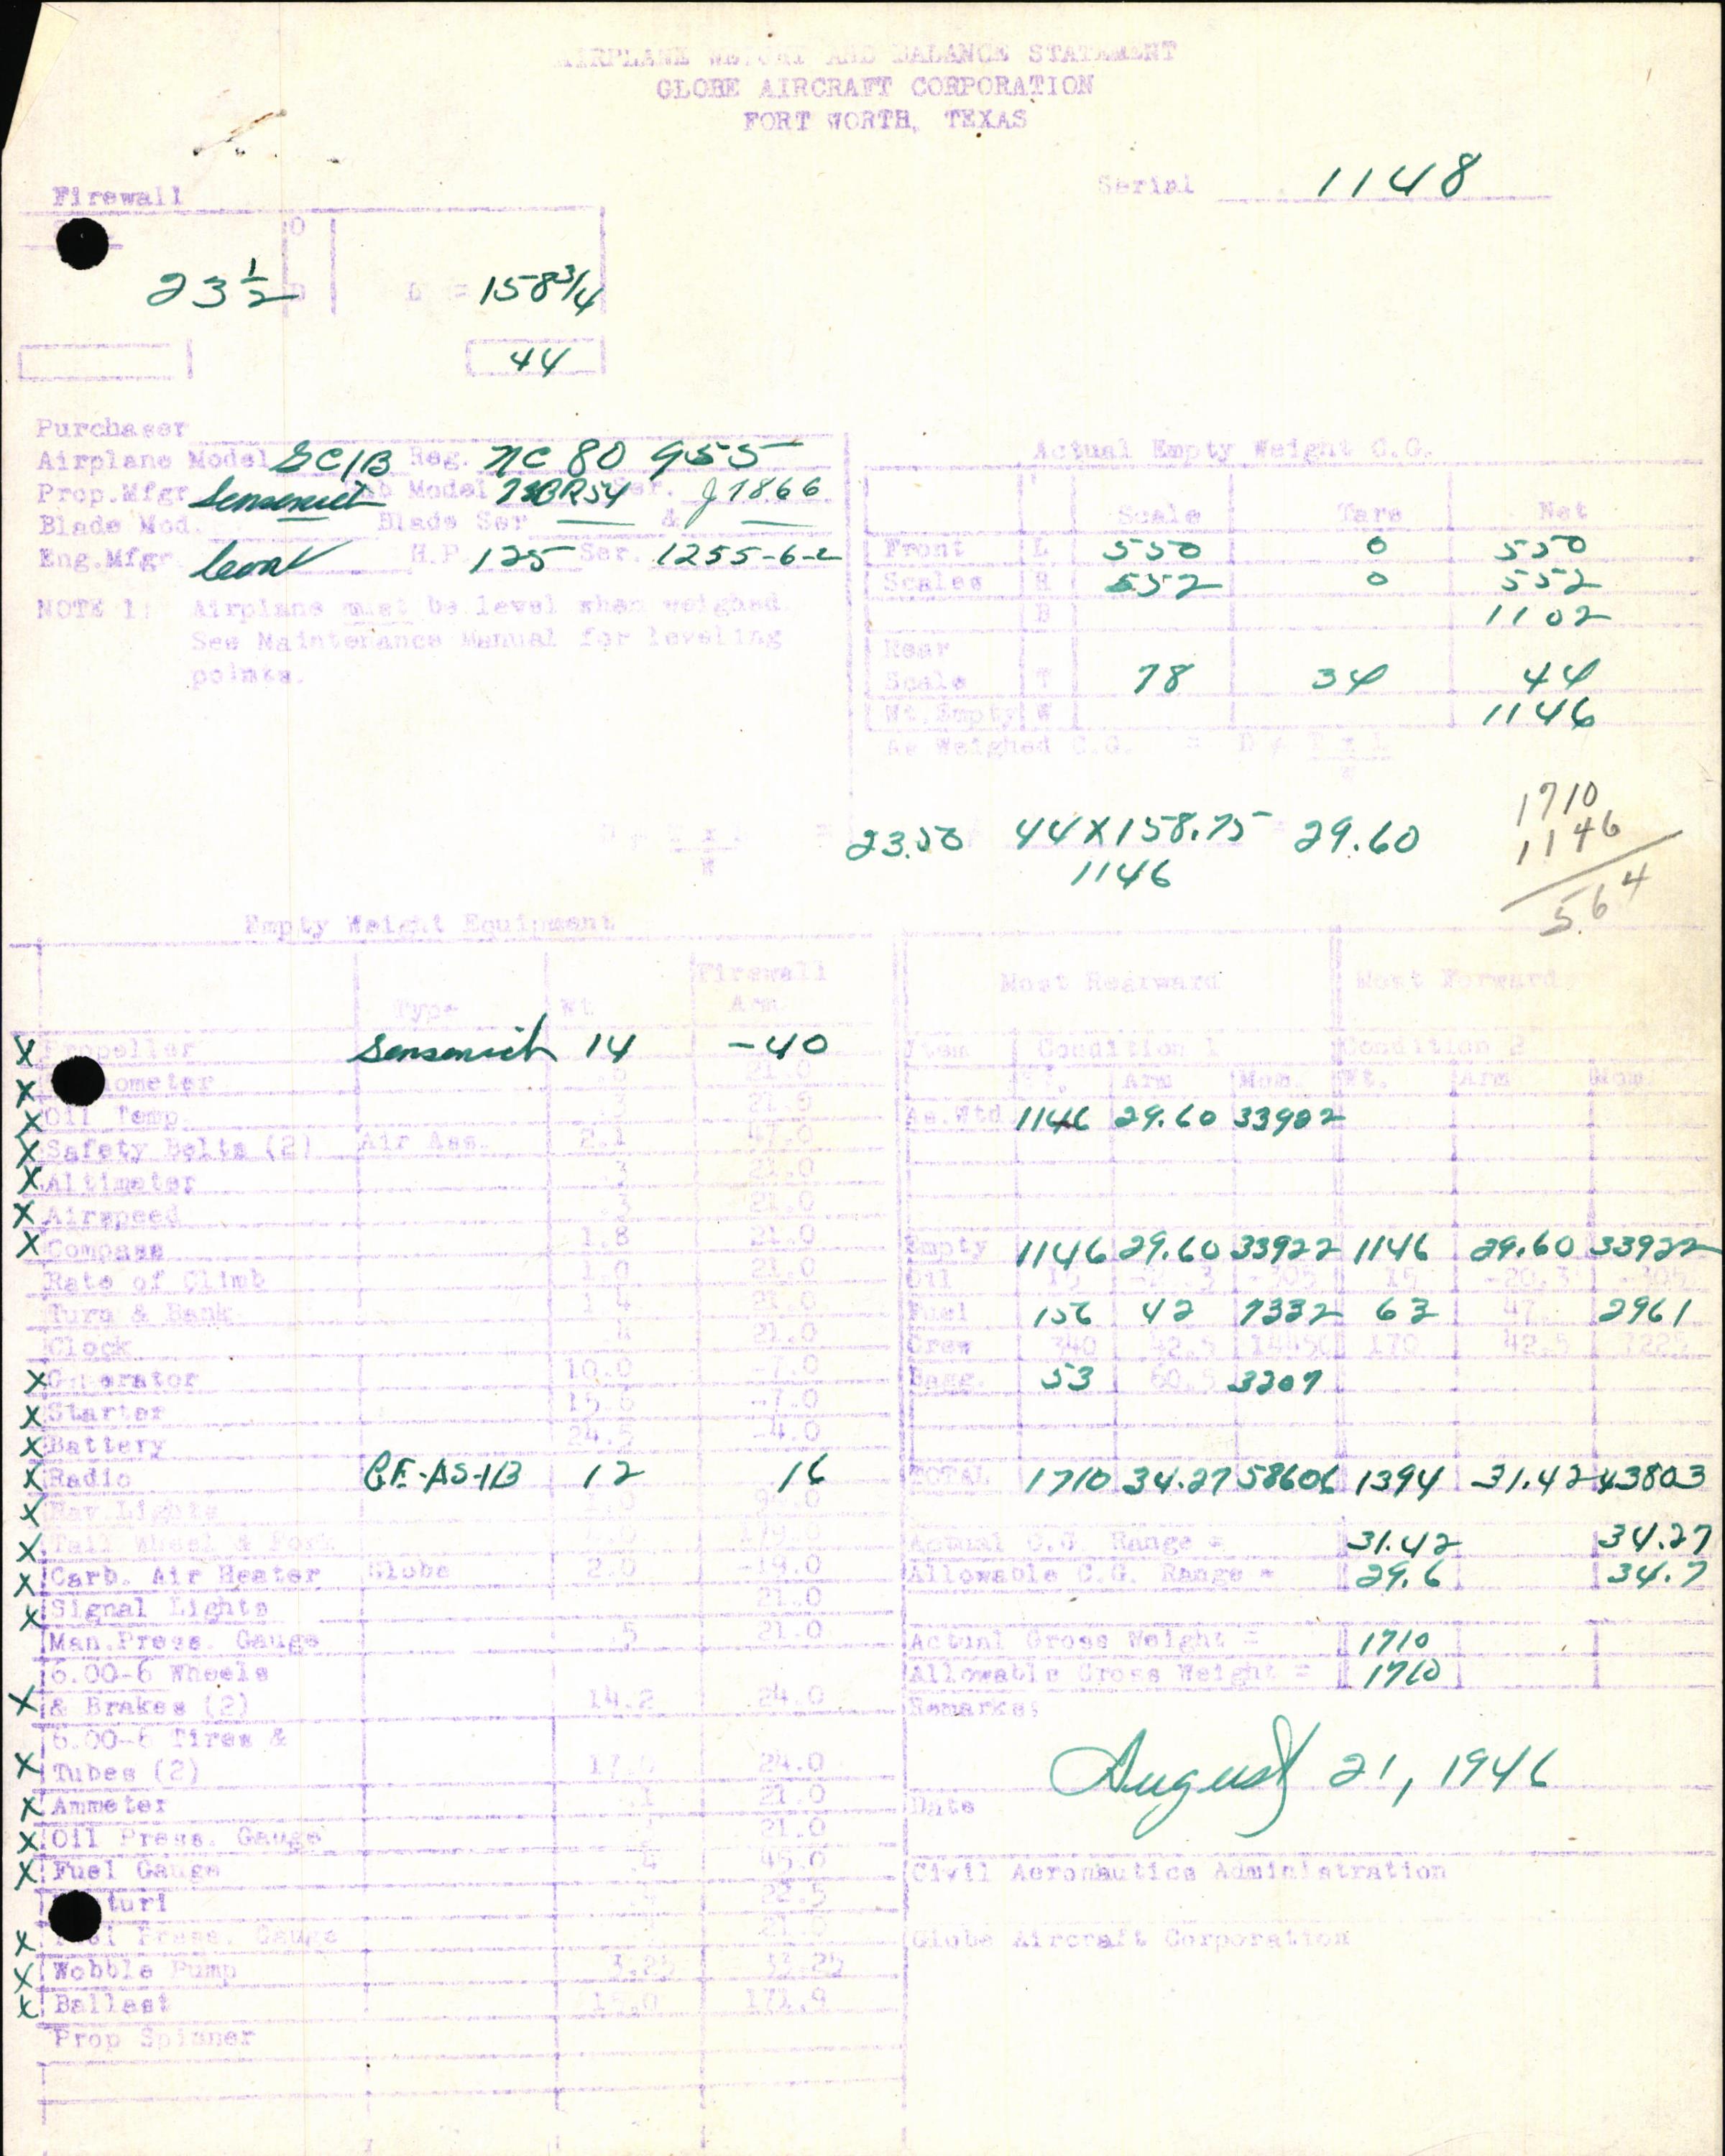 AIRPLANE WEIGHT AND BALANCE STATEMENT
GLOBE AIRCRAFT CORPORATION
FORT WORTH, TEXAS
Serial 1148
Firewall
23 1/2 D = 158 3/4
44
Purchaser
Airplane Model GC1B Reg. NC 80 955
Prop.Mfgr Sensenich Hub Model Ser. J7866
Blade Mod. Blade Ser — & —
Eng.Mfgr. Cont H.P. 125 Ser. 1255-6-2
NOTE 1: Airplane must be level when weighed.
See Maintenance Manual for leveling
points.
Actual Empty Weight C.G.
Scale Tare Net
Front L 550 0 550
Scales R 552 0 552
B 1102
Rear
Scale T 78 34 44
Wt.Empty W 1146
As Weighed C.G. = D ≠ T x L
W
D ≠ T x L = 23.50 44X158.75 = 29.60
W 1146
1710
1146
564
Empty Weight Equipment
Type Wt. Firewall Arm
X Propeller Sensenich 14 -40
X Tachometer 21.0
X Oil Temp. 21.0
X Safety Belts (2) Air Ass. 2.1 47.0
X Altimeter .3 21.0
X Airspeed .3 21.0
X Compass 1.8 21.0
Rate of Climb 1.0 21.0
Turn & Bank 1.4 21.0
Clock 21.0
X Generator 10.0 -7.0
X Starter 15.6 -7.0
X Battery 24.5 -4.0
X Radio G.E.-AS-1B 12 16
X Nav.Lights
X Tail Wheel & Fork
X Carb. Air Heater Globe 2.0 -19.0
X Signal Lights 21.0
Man.Press. Gauge .5 21.0
6.00-6 Wheels
X & Brakes (2) 14.2 24.0
6.00-6 Tires &
X Tubes (2) 24.0
X Ammeter .1 21.0
X Oil Press. Gauge 21.0
X Fuel Gauge .4
Venturi 22.5
X Fuel Press. Gauge 21.0
X Wobble Pump 3.25 33.25
X Ballast 15.0 171.9
Prop Spinner
Most Rearward Most Forward
Item Condition 1 Condition 2
Wt. Arm Mom. Wt. Arm Mom.
As.Wtd 1146 29.60 33902
Empty 1146 29.60 33922 1146 29.60 33922
Oil 15 -20.3 -305 15 -20.3 -305
Fuel 156 42 7332 63 47. 2961
Crew 340 42.5 14450 170 42.5 7225
Bagg. 53 60.5 3207
TOTAL 1710 34.27 58606 1394 31.42 43803
Actual C.G. Range = 31.42 34.27
Allowable C.G. Range = 29.6 34.7
Actual Gross Weight = 1710
Allowable Gross Weight = 1710
Remarks:
August 21, 1946
Date
Civil Aeronautics Administration
Globe Aircraft Corporation